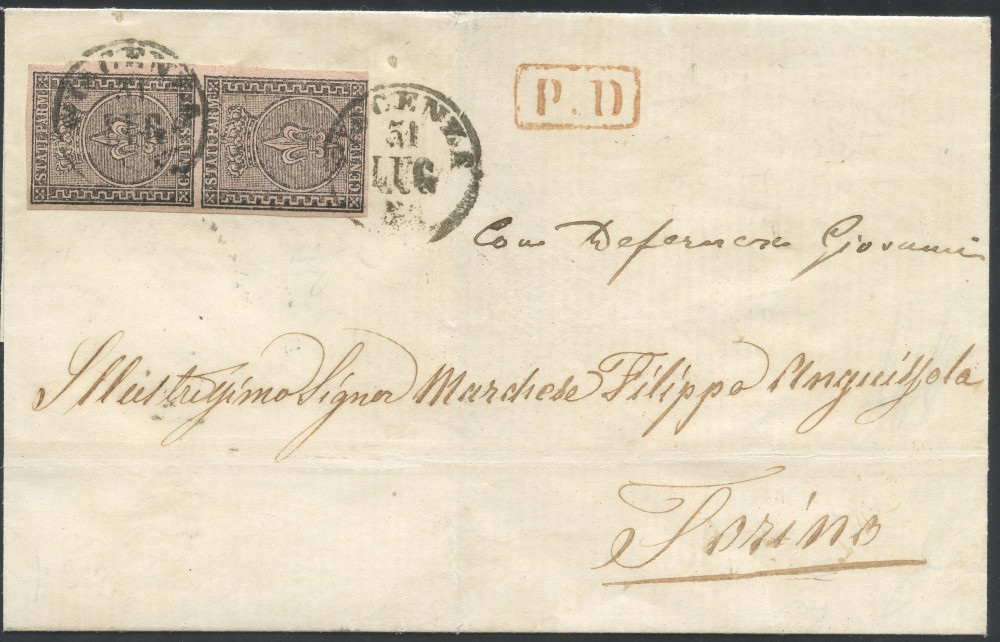 STATI PARM CENTES STATI PARM CENTES
PIACENZA
31
LUG
P.D
Con Giovanni
Illustrissimo Signor Marchese Filippo Anguissola
Torino